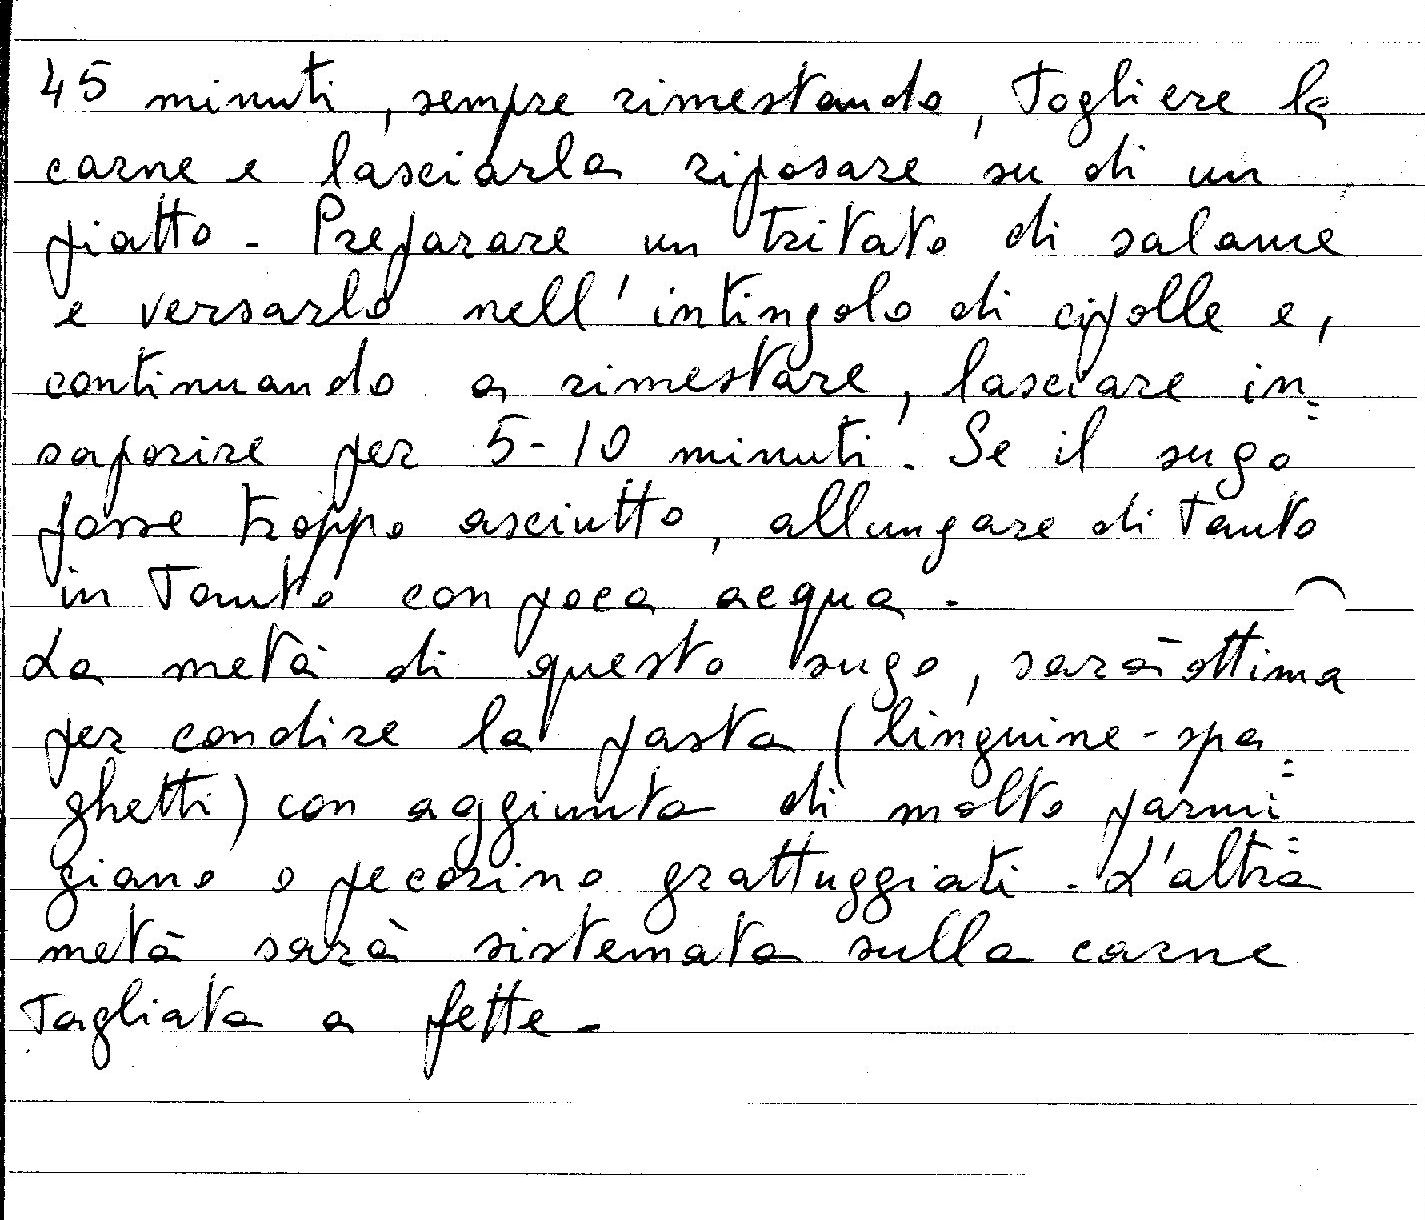 45 minuti, sempre rimestando, Togliere la
carne e lasciarla riposare su di un
piatto - Preparare un tritato di salame
e versarlo nell'intingolo di cipolle e,
continuando a rimestare, lasciare in=
saporire per 5-10 minuti. Se il sugo
fosse troppo asciutto, allungare di tanto
in tanto con poca acqua -
La metà di questo sugo, sarà ottima
per condire la pasta (linguine - spa=
ghetti) con aggiunta di molto parmi=
giano o pecorino grattuggiati. L'altra
metà sarà sistemata sulla carne
tagliata a fette -